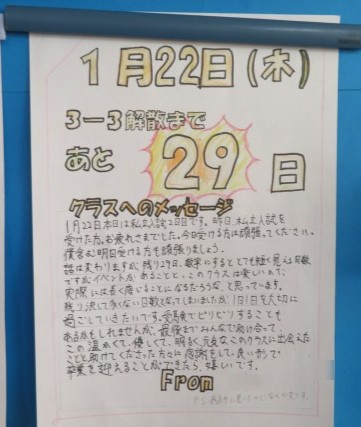 1月22日(木)
3-3解散まで
あと
29
日
クラスへのメッセージ
1月22日本日は私立入試2回目です。昨日、私立入試を
受けた方、お疲れさまでした。今日受ける方は頑張ってください。
僕含む明日受ける方も頑張りましょう。
話は変わりますが、残り29日、数字にするととても短く見える日数
ですがイベントがあることと、このクラスは楽しいので、
実際には長く感じることになるだろうな、と思っています。
残り決して多くない日数となってしまいましたが、1日1日を大切に
過ごしていきたいです。受験でピリピリすることも
あるかもしれませんが、最後までみんなで助け合って、
この温かくて、優しくて、明るく元気なこのクラスに出会えた
ことと助けてくださった方々に感謝をして、良い形で
卒業を迎えることができたら、嬉しいです。
From